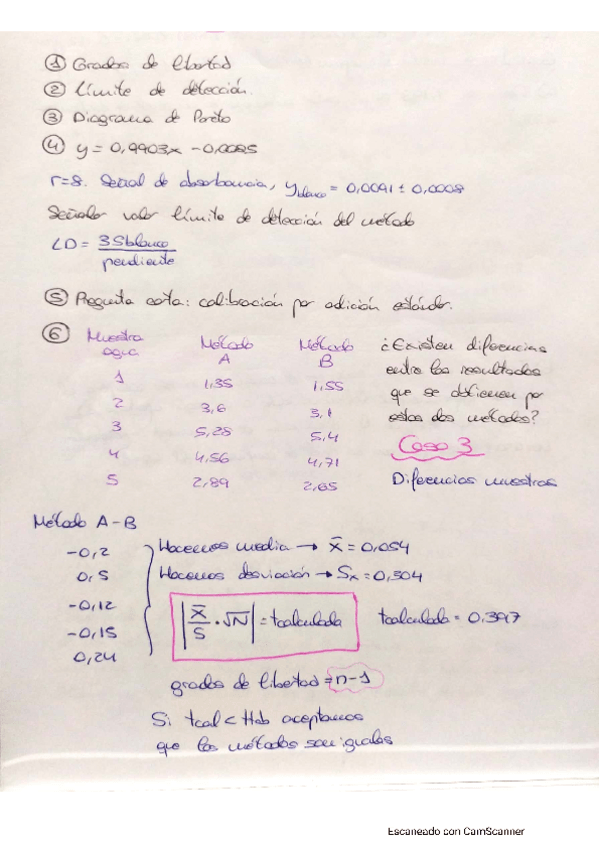 ① Grados de libertad
② Límite de detección.
③ Diagrama de Pareto
④ y = 0,9903x - 0,0085
r=8. Señal de absorbancia, y blanco = 0,0091 ± 0,0008
Señalar valor límite de detección del método
LD = 3Sblanco / pendiente
⑤ Pregunta corta: calibración por adición estándar.
⑥ Muestra agua Método A Método B
1 1,35 1,55
2 3,6 3,1
3 5,28 5,4
4 4,56 4,71
5 2,89 2,65
¿Existen diferencias
entre los resultados
que se obtienen por
estos dos métodos?
Caso 3
Diferencias muestras
Método A-B
-0,2
0,5
-0,12
-0,15
0,24
Hacemos media → x̄ = 0,054
Hacemos desviación → Sx = 0,304
|x̄/S · √N| = tcalculada
tcalculada = 0.397
grados de libertad = n-1
Si tcal < ttab aceptamos
que los métodos son iguales
Escaneado con CamScanner